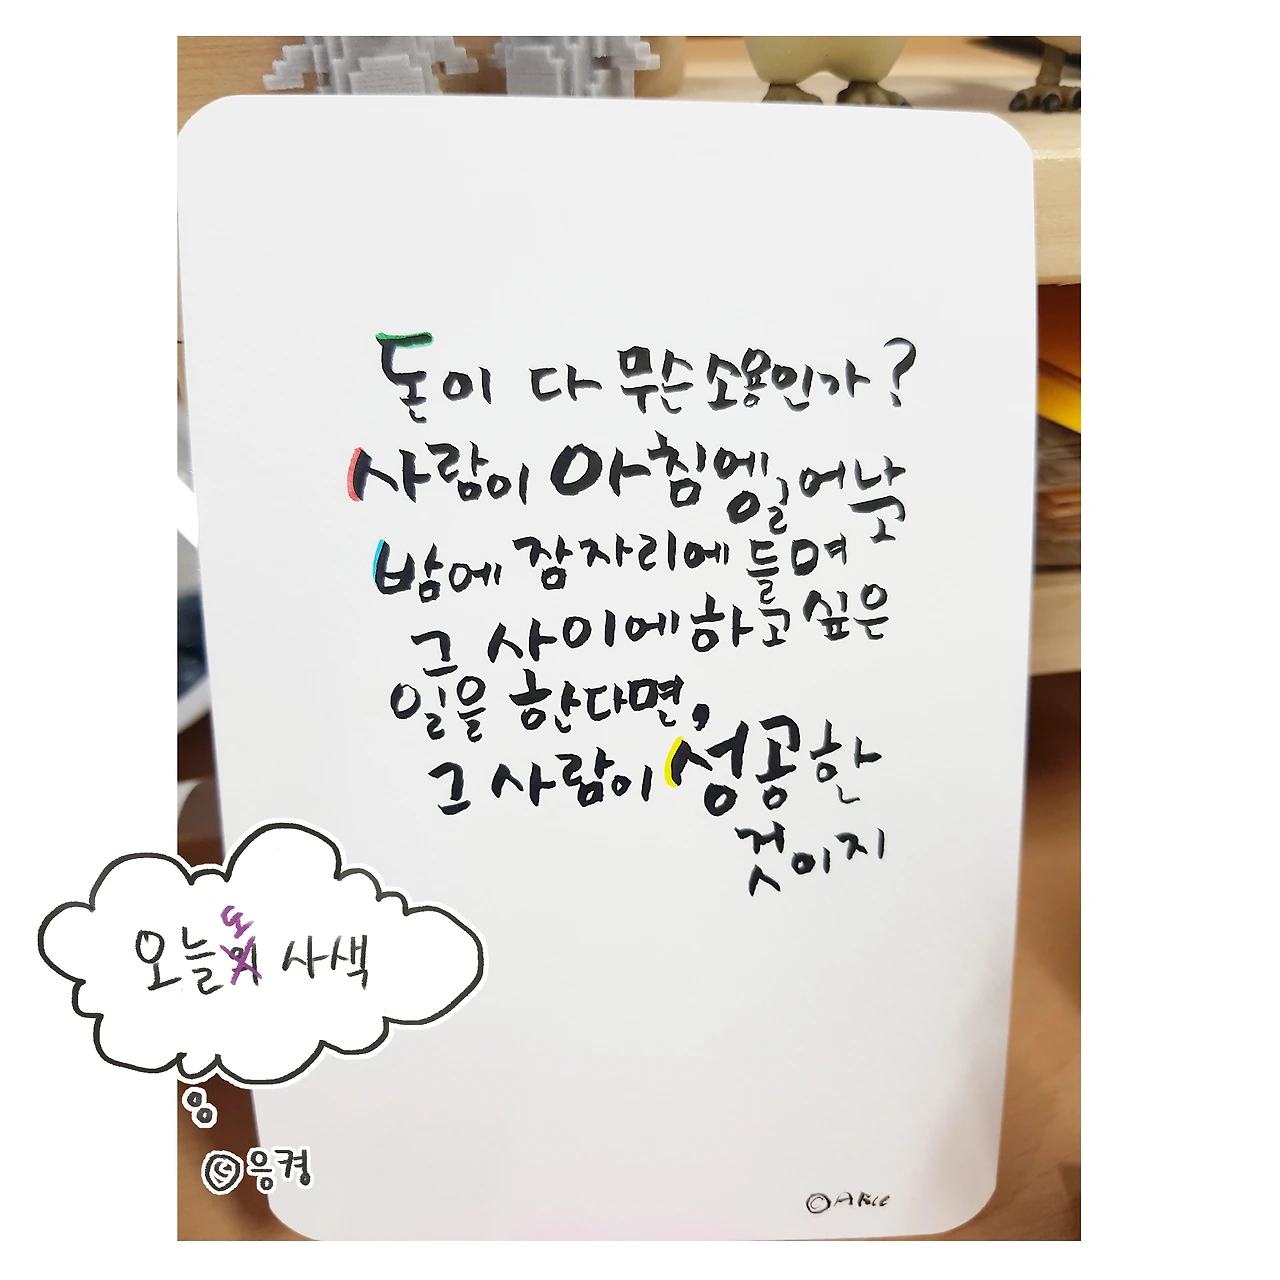 돈이 다 무슨 소용인가?
사람이 아침에 일어나고
밤에 잠자리에 들며
그 사이에 하고 싶은
일을 한다면,
그 사람이 성공한
것이지
오늘도 사색
© 응켱
©